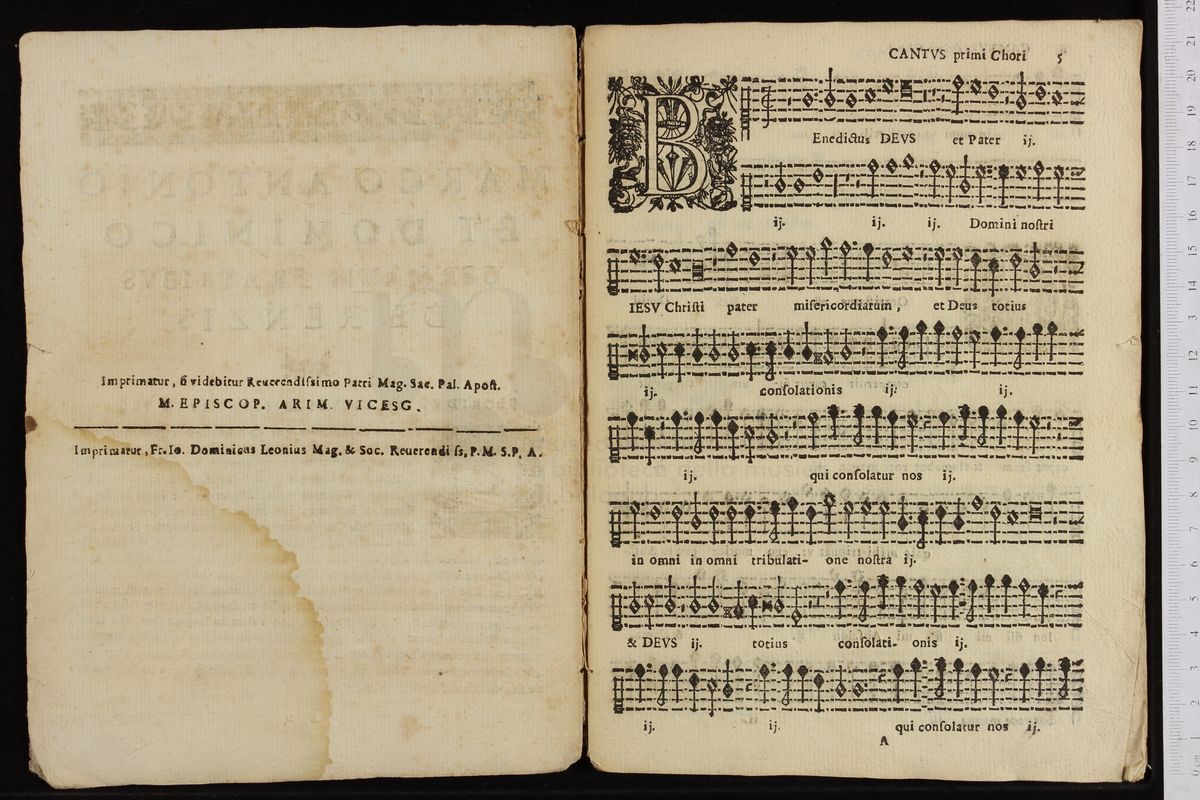 Imprimatur, si videbitur Reuerendissimo Patri Mag. Sac. Pal. Apost.
M. EPISCOP. ARIM. VICESG.
Imprimatur, Fr. Io. Dominicus Leonius Mag. & Soc. Reuerendiss, P. M. S. P. A.
CANTVS primi Chori 5
BEnedictus DEVS et Pater ij.
ij. ij. ij. Domini nostri
IESV Christi pater misericordiarum, et Deus totius
ij. consolationis ij. ij.
ij. qui consolatur nos ij.
in omni in omni tribulati- one nostra ij.
& DEVS ij. totius consolati- onis ij.
ij. ij. qui consolatur nos ij.
A